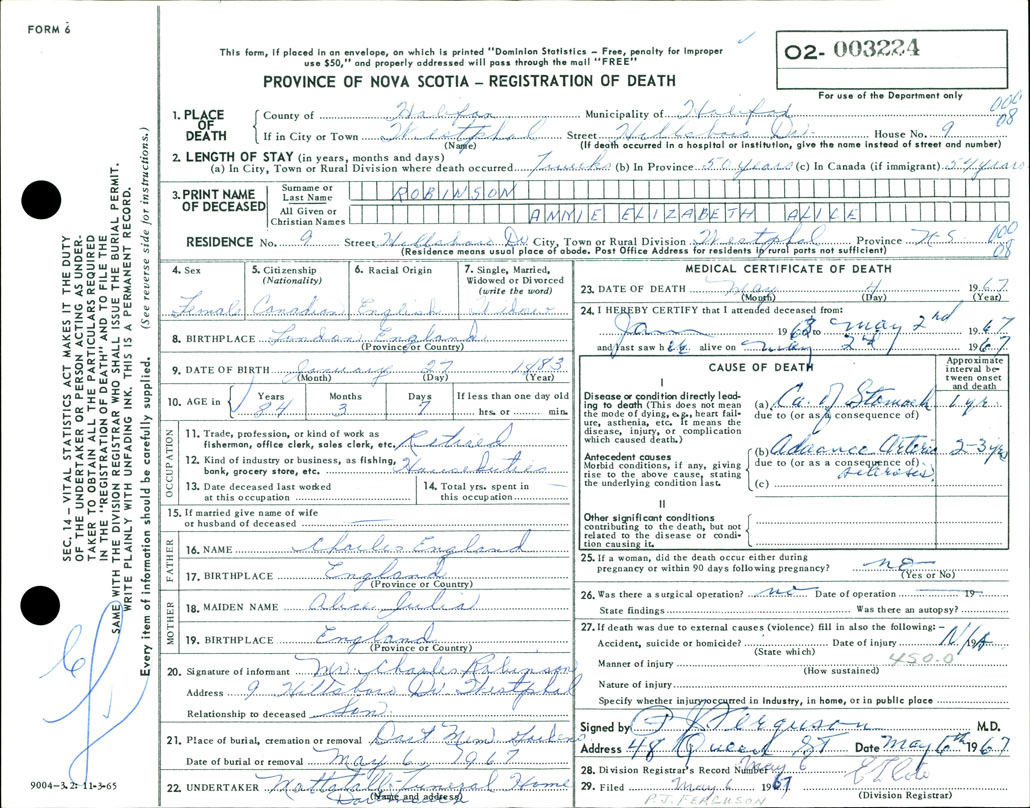 FORM 6
This form, if placed in an envelope, on which is printed "Dominion Statistics – Free, penalty for improper
use $50," and properly addressed will pass through the mail "FREE"
O2- 003224
PROVINCE OF NOVA SCOTIA – REGISTRATION OF DEATH
For use of the Department only
1. PLACE OF DEATH
County of Halifax Municipality of Halifax 000 08
If in City or Town Westphal Street Hillsboro Dr. House No. 9
(Name) (If death occurred in a hospital or institution, give the name instead of street and number)
2. LENGTH OF STAY (in years, months and days)
(a) In City, Town or Rural Division where death occurred (b) In Province 50 years (c) In Canada (if immigrant) 54 years
3. PRINT NAME OF DECEASED
Surname or Last Name ROBINSON
All Given or Christian Names ANNIE ELIZABETH ALICE
RESIDENCE No. 9 Street Hillsboro Dr City, Town or Rural Division Westphal Province N.S. 000 08
(Residence means usual place of abode. Post Office Address for residents in rural parts not sufficient)
4. Sex Female
5. Citizenship (Nationality) Canadian
6. Racial Origin English
7. Single, Married, Widowed or Divorced (write the word) Widow
8. BIRTHPLACE London England
(Province or Country)
9. DATE OF BIRTH January 27 1883
(Month) (Day) (Year)
10. AGE in Years Months Days If less than one day old
84 3 7 hrs. or min.
OCCUPATION
11. Trade, profession, or kind of work as fisherman, office clerk, sales clerk, etc. Retired
12. Kind of industry or business, as fishing, bank, grocery store, etc. Houseduties
13. Date deceased last worked at this occupation
14. Total yrs. spent in this occupation
15. If married give name of wife or husband of deceased
FATHER
16. NAME Charles England
17. BIRTHPLACE England
(Province or Country)
MOTHER
18. MAIDEN NAME Alice Julia
19. BIRTHPLACE England
(Province or Country)
20. Signature of informant Mr. Charles Robinson
Address 9 Hillsboro Dr Westphal
Relationship to deceased Son
21. Place of burial, cremation or removal Dart Mem Gardens
Date of burial or removal May 6, 1967
22. UNDERTAKER Mattatall Funeral Home
(Name and address)
MEDICAL CERTIFICATE OF DEATH
23. DATE OF DEATH May 4 1967
(Month) (Day) (Year)
24. I HEREBY CERTIFY that I attended deceased from:
Jan 196 to May 2nd 1967
and last saw her alive on May 2nd 1967
CAUSE OF DEATH
Approximate interval between onset and death
I
Disease or condition directly leading to death (This does not mean the mode of dying, e.g., heart failure, asthenia, etc. It means the disease, injury, or complication which caused death.)
(a) Ca. of Stomach 1 yr.
due to (or as a consequence of)
Antecedent causes
Morbid conditions, if any, giving rise to the above cause, stating the underlying condition last.
(b) Advance Arterio 2-3 yrs
due to (or as a consequence of) sclerosis
(c)
II
Other significant conditions
contributing to the death, but not related to the disease or condition causing it.
25. If a woman, did the death occur either during pregnancy or within 90 days following pregnancy? no
(Yes or No)
26. Was there a surgical operation? no Date of operation 19
State findings Was there an autopsy?
27. If death was due to external causes (violence) fill in also the following: –
Accident, suicide or homicide? Date of injury N/A 19
(State which)
Manner of injury 450.0
(How sustained)
Nature of injury
Specify whether injury occurred in Industry, in home, or in public place
Signed by P J Ferguson M.D.
Address 48 Queen ST Date May 6th 1967
28. Division Registrar's Record Number May 6
29. Filed May 6 1967
(Division Registrar)
P.J. FERGUSON
9004-3.2: 11-3-65
SEC. 14 – VITAL STATISTICS ACT MAKES IT THE DUTY
OF THE UNDERTAKER OR PERSON ACTING AS UNDER-
TAKER TO OBTAIN ALL THE PARTICULARS REQUIRED
IN THE "REGISTRATION OF DEATH" AND TO FILE THE
SAME WITH THE DIVISION REGISTRAR WHO SHALL ISSUE THE BURIAL PERMIT.
WRITE PLAINLY WITH UNFADING INK. THIS IS A PERMANENT RECORD.
Every item of information should be carefully supplied. (See reverse side for instructions.)